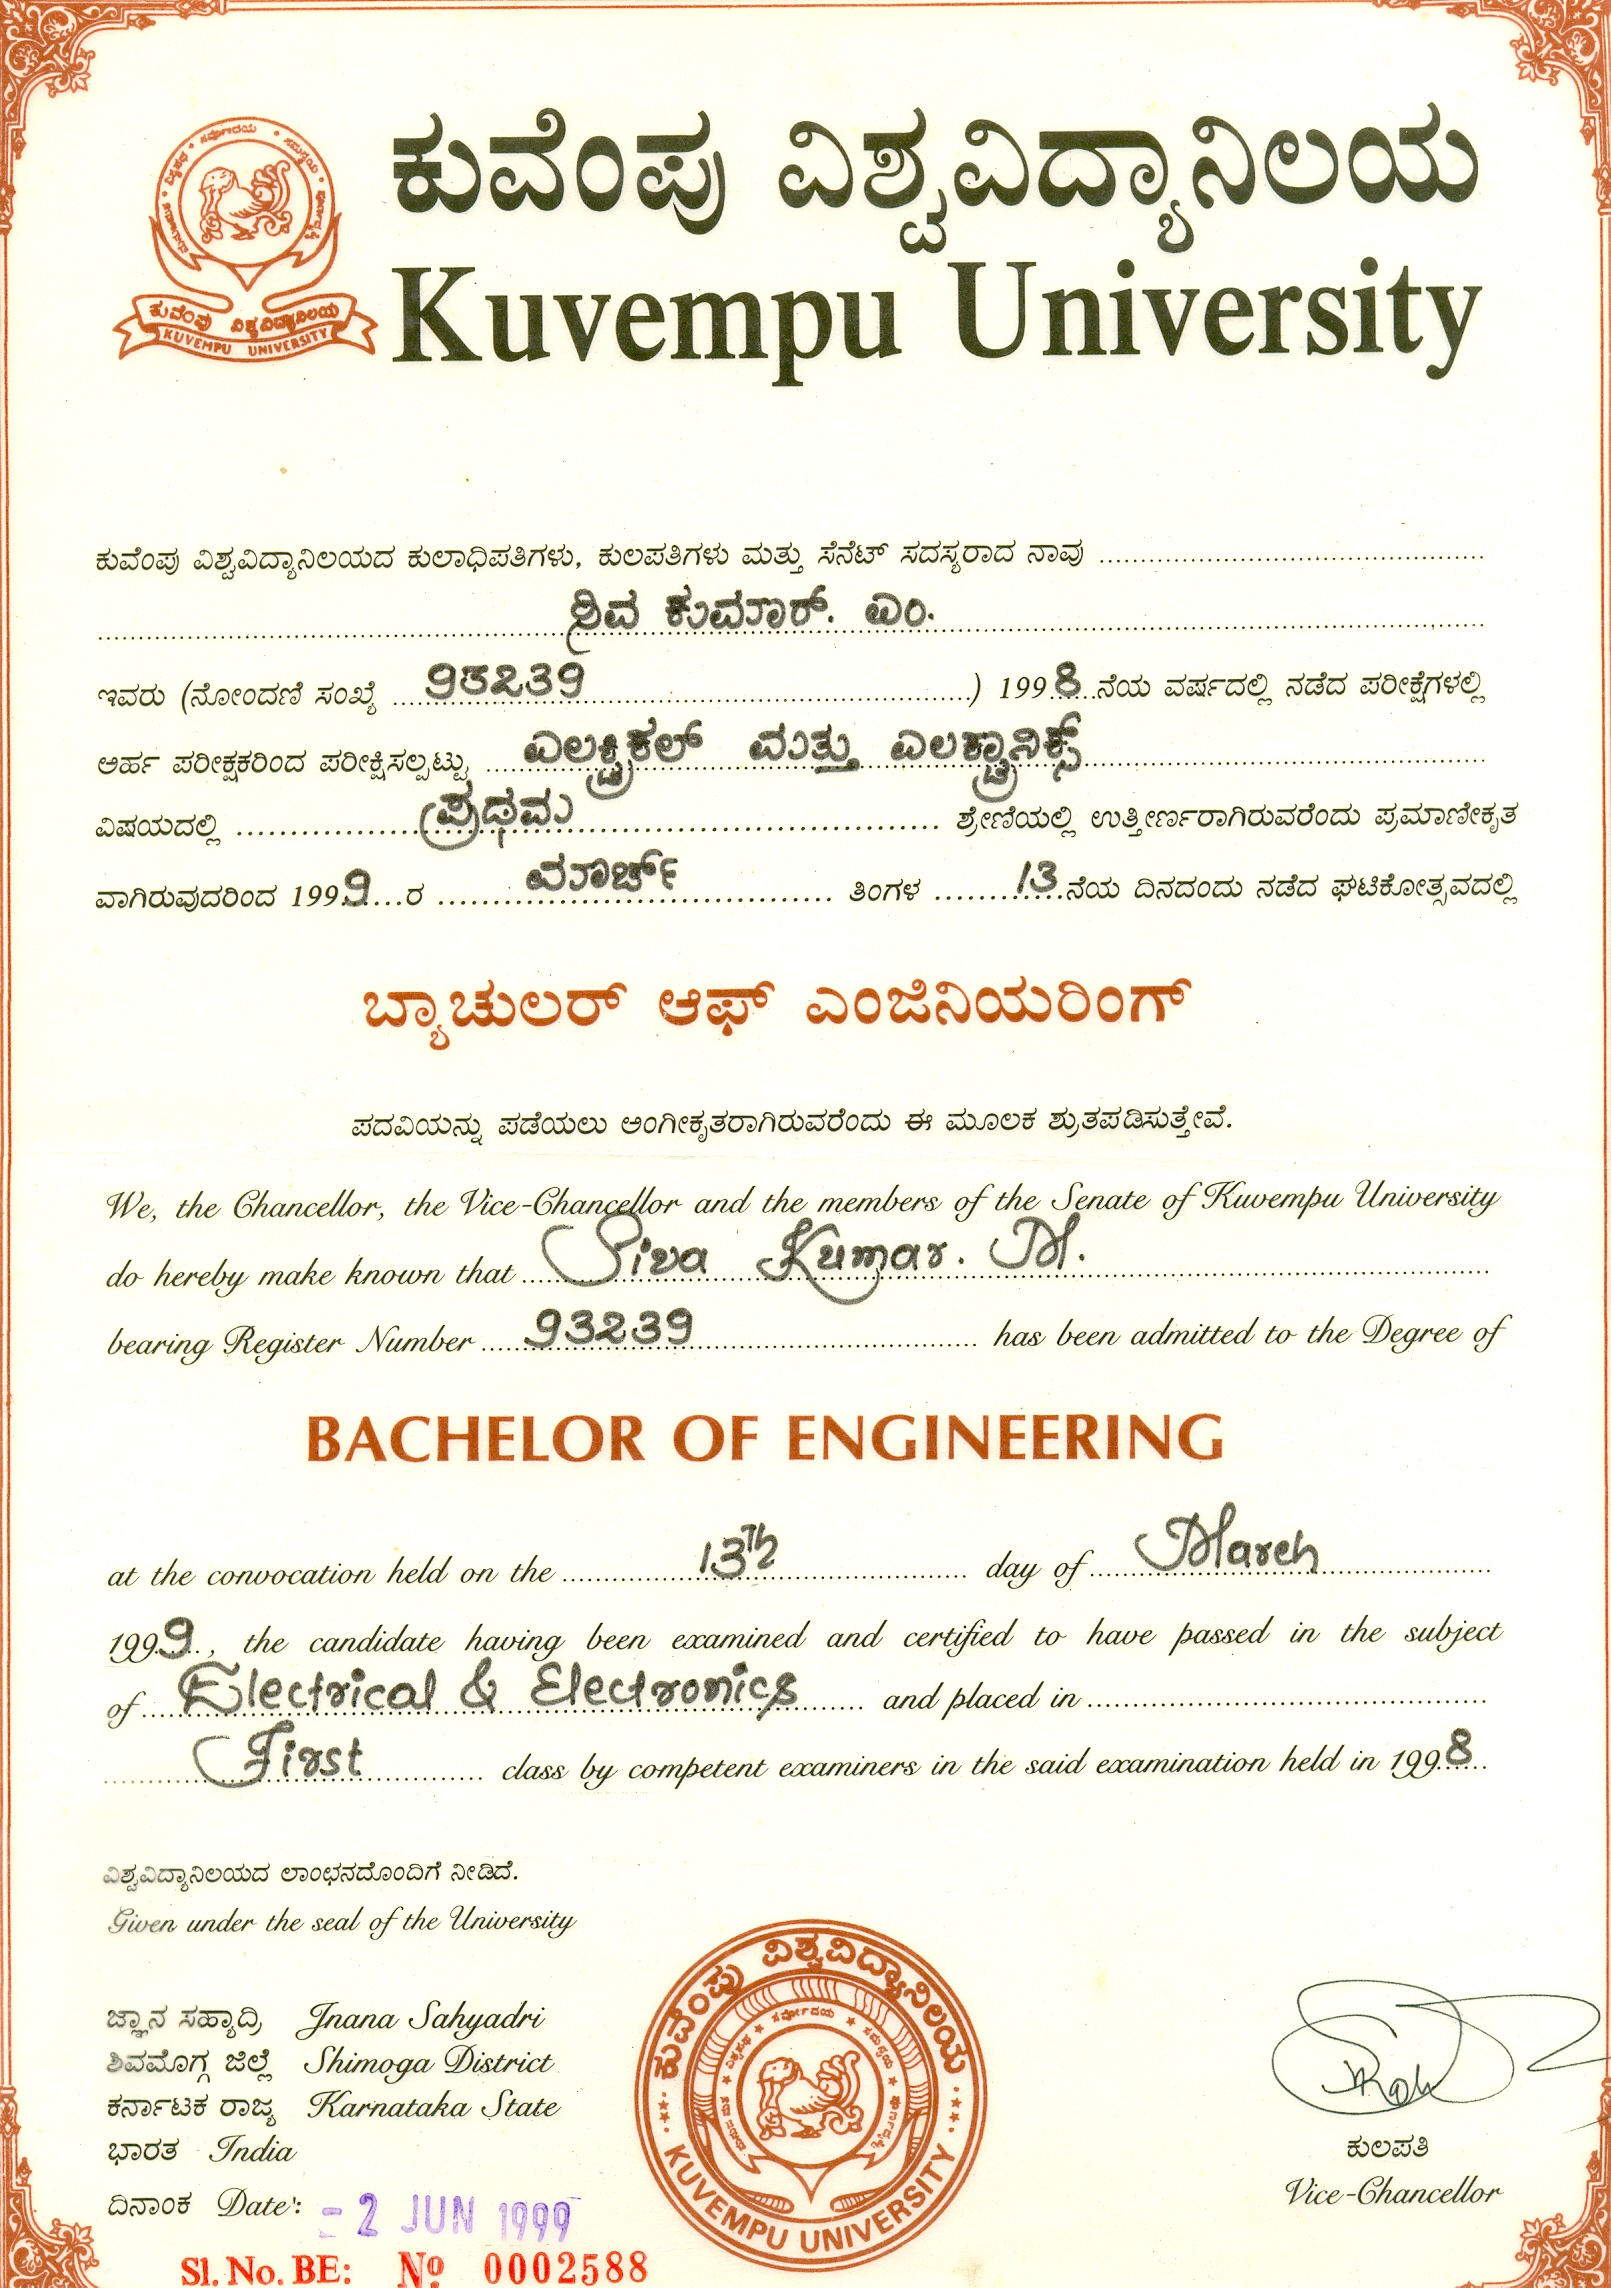 ಕುವೆಂಪು ವಿಶ್ವವಿದ್ಯಾನಿಲಯ
Kuvempu University
ಕುವೆಂಪು ವಿಶ್ವವಿದ್ಯಾನಿಲಯ
KUVEMPU UNIVERSITY
ಕುವೆಂಪು ವಿಶ್ವವಿದ್ಯಾನಿಲಯದ ಕುಲಾಧಿಪತಿಗಳು, ಕುಲಪತಿಗಳು ಮತ್ತು ಸೆನೆಟ್ ಸದಸ್ಯರಾದ ನಾವು
ಶಿವ ಕುಮಾರ್. ಎಂ.
ಇವರು (ನೋಂದಣಿ ಸಂಖ್ಯೆ 93239 ) 1998 ನೆಯ ವರ್ಷದಲ್ಲಿ ನಡೆದ ಪರೀಕ್ಷೆಗಳಲ್ಲಿ
ಅರ್ಹ ಪರೀಕ್ಷಕರಿಂದ ಪರೀಕ್ಷಿಸಲ್ಪಟ್ಟು ಎಲಕ್ಟ್ರಿಕಲ್ ಮತ್ತು ಎಲಕ್ಟ್ರಾನಿಕ್ಸ್
ವಿಷಯದಲ್ಲಿ ಪ್ರಥಮ ಶ್ರೇಣಿಯಲ್ಲಿ ಉತ್ತೀರ್ಣರಾಗಿರುವರೆಂದು ಪ್ರಮಾಣೀಕೃತ
ವಾಗಿರುವುದರಿಂದ 1999 ರ ಮಾರ್ಚ್ ತಿಂಗಳ 13 ನೆಯ ದಿನದಂದು ನಡೆದ ಘಟಿಕೋತ್ಸವದಲ್ಲಿ
ಬ್ಯಾಚುಲರ್ ಆಫ್ ಎಂಜಿನಿಯರಿಂಗ್
ಪದವಿಯನ್ನು ಪಡೆಯಲು ಅಂಗೀಕೃತರಾಗಿರುವರೆಂದು ಈ ಮೂಲಕ ಶ್ರುತಪಡಿಸುತ್ತೇವೆ.
We, the Chancellor, the Vice-Chancellor and the members of the Senate of Kuvempu University
do hereby make known that Siva Kumar. M.
bearing Register Number 93239 has been admitted to the Degree of
BACHELOR OF ENGINEERING
at the convocation held on the 13th day of March
1999, the candidate having been examined and certified to have passed in the subject
of Electrical & Electronics and placed in
First class by competent examiners in the said examination held in 1998
ವಿಶ್ವವಿದ್ಯಾನಿಲಯದ ಲಾಂಛನದೊಂದಿಗೆ ನೀಡಿದೆ.
Given under the seal of the University
ಜ್ಞಾನ ಸಹ್ಯಾದ್ರಿ Jnana Sahyadri
ಶಿವಮೊಗ್ಗ ಜಿಲ್ಲೆ Shimoga District
ಕರ್ನಾಟಕ ರಾಜ್ಯ Karnataka State
ಭಾರತ India
ದಿನಾಂಕ Date: - 2 JUN 1999
Sl. No. BE: No 0002588
ಕುವೆಂಪು ವಿಶ್ವವಿದ್ಯಾನಿಲಯ
KUVEMPU UNIVERSITY
ಕುಲಪತಿ
Vice-Chancellor